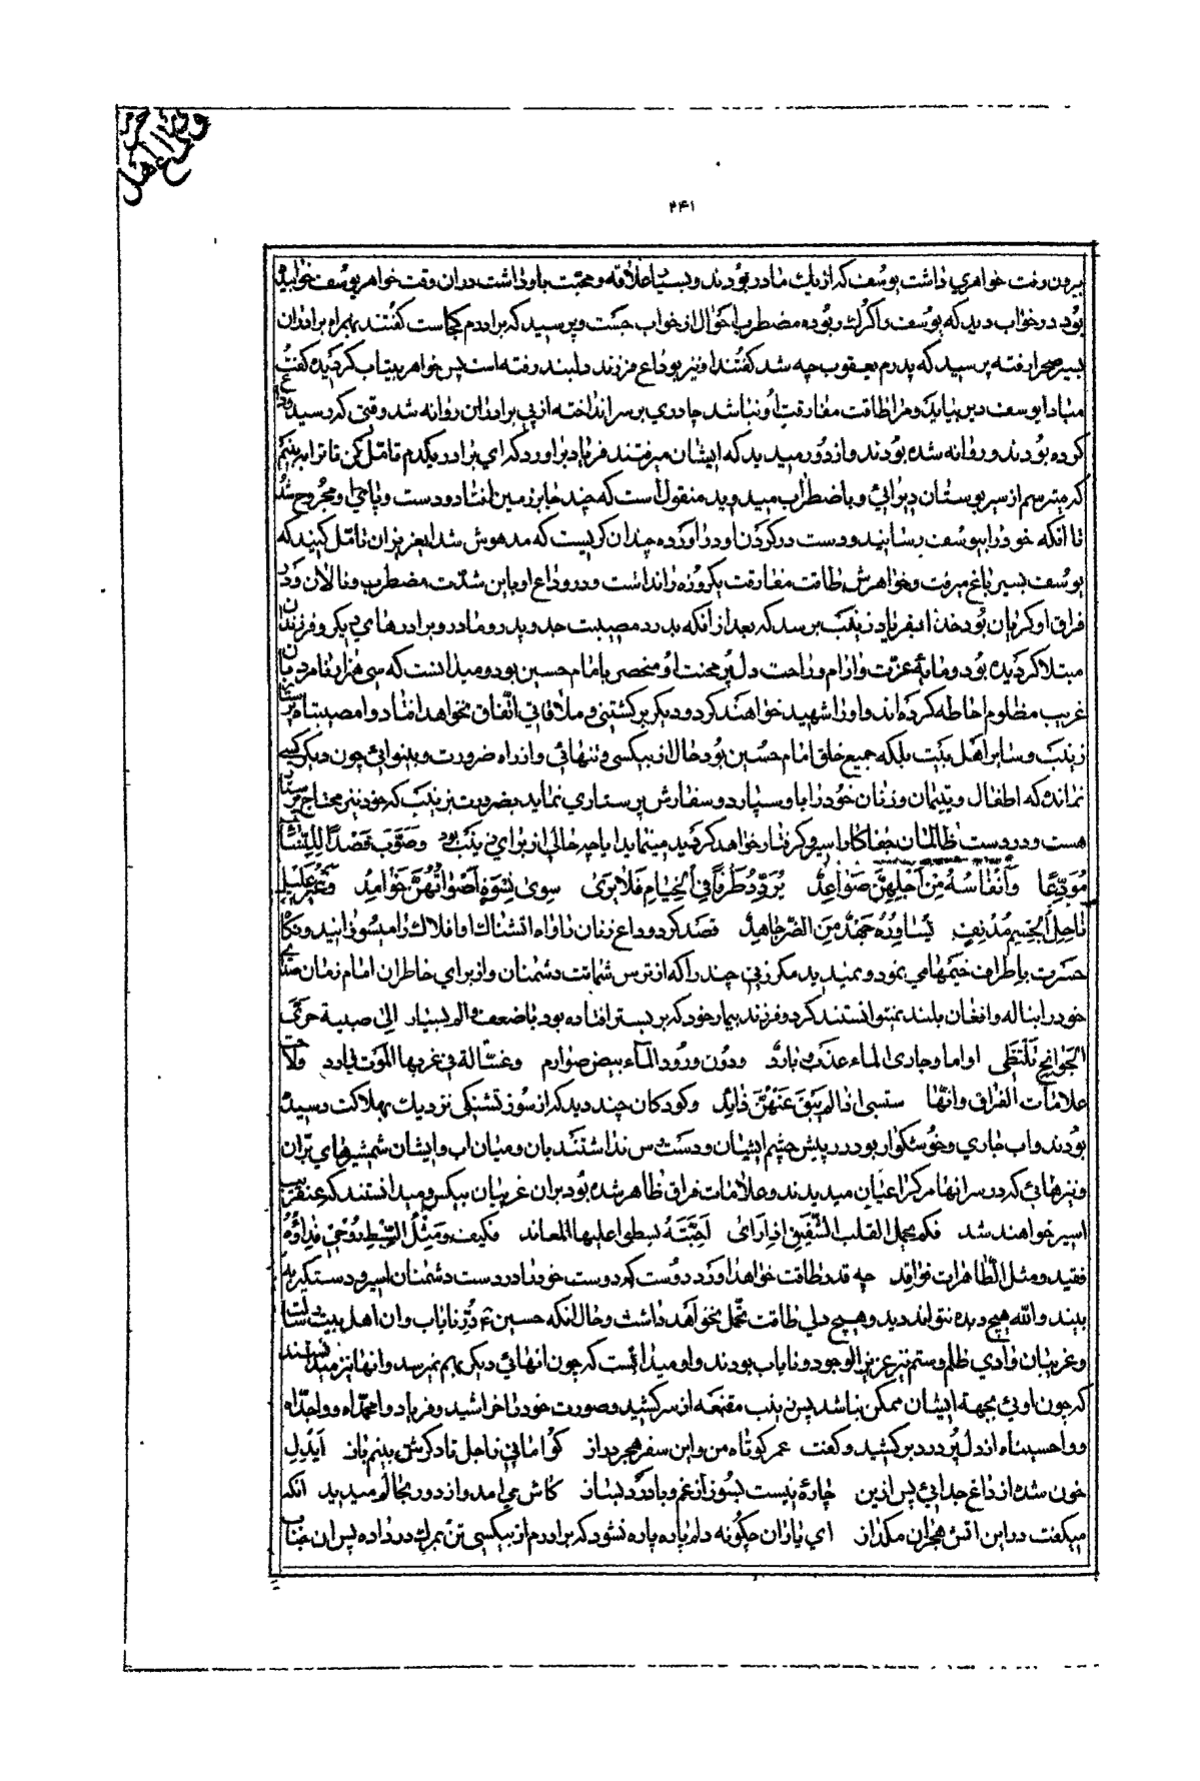 ۲۴۱
بیرون رفت خواهری داشت یوسف که از یک مادر بودند و بسیار علاقه و محبت باو داشت در آن وقت خواهر یوسف خوابیده
بود در خواب دید که یوسف را گرک ربوده مضطرب احوال از خواب جست و پرسید که برادرم کجاست گفتند بهمراه برادران
بسیر صحرا رفته پرسید که پدرم یعقوب چه شد گفتند او نیز بوداع فرزند دلبند رفته است پس خواهر بیتاب گردیده گفت
مبادا یوسف دیر بیاید و مرا طاقت مفارقت او نباشد چادری بر سر انداخته از پی برادران روانه شد وقتی که رسید وداع
کرده بودند و روانه شده بودند و از دور میدید که ایشان میرفتند فریاد برآورد که ای برادر یکدم تامل کن تا ترا ببینم
که میترسم از سر بوستان دیر آئی و باضطراب میدوید منقول است که چند جا بر زمین افتاد و دست و پای او مجروح شد
تا آنکه خود را بیوسف رسانید و دست در گردن او در آورده چندان گریست که مدهوش شد ایعزیزان تامل کنید که
یوسف بسیر باغ میرفت و خواهرش طاقت مفارقت یکروزه را نداشت و در وداع او باین شدت مضطرب و نالان و در
فراق او گریان بود خدا بفریاد زینب برسد که بعد از آنکه بدرد مصیبت جد و پدر و مادر و برادرهای دیگر و فرزندان
مبتلا گردیده بود و مایه عزت و آرام و راحت دل پر محنت او منحصر بامام حسین بود و میدانست که سی هزار نامرد بآن
غریب مظلوم احاطه کرده اند و او را شهید خواهند کرد و دیگر برگشتنی و ملاقاتی اتفاق نخواهد افتاد وا مصیبتاه پرستار
زینب و سایر اهل بیت بلکه جمیع خلق امام حسین بود حال از بیکسی و تنهائی و از راه ضرورت و بینوائی چون دیگر کسی
نمانده که اطفال و یتیمان و زنان خود را باو سپارد و سفارش پرستاری نماید بضرورت بزینب که خود نیز محتاج پرستار
هست و در دست ظالمان جفاکار اسیر و گرفتار خواهد گردید مینماید آیا چه حالی از برای زینب بود و صوب قصدا للنساء
مودعا و انفاسه من اجلهن صواعد یردد طرفا فی الخیام فلا یری سوی نسوة اصواتهن خوامد و غیر علیل
ناحل الجسم مدنف یساوره جهد من الضر جاهد قصد کرد وداع زنان را و آه آتشناک او افلاک را میسوزانید و نگاه
حسرت باطراف خیمهها می نمود و نمیدید مگر زنی چند را که از ترس شماتت دشمنان و از برای خاطر آن امام زمان صدای
خود را بناله و افغان بلند نمیتوانستند کرد و فرزند بیمار خود که بر بستر افتاده بود با ضعف و الم بسیار الی صبیة حری
الجوانح تلتظی اواما و جاری الماء عذب و بارد و دون ورود الماء بیض صوارم و عسالة فی غربها الموت بارد و لاحت
علامات الفراق و انها ستسبی اذا لم یبق عنهن ذائد و کودکان چند دید که از سوز تشنگی نزدیک بهلاکت رسیده
بودند و آب جاری و خوشگوار بود در پیش چشم ایشان و دست رس نداشتند بآن و میان آب و ایشان شمشیرهای بران
و نیزهائی که در سر آنها مرگ را عیان میدیدند و علامات فراق ظاهر شده بود بر آن غریبان بیکس و میدانستند که عنقریب
اسیر خواهند شد فکم یحمل القلب الشفیق اذا رای احبته یسطی علیها المعاند فکیف و مثل السبط روحی فداؤه
فقید و مثل الطاهرات فواقد چه قدر طاقت خواهد آورد دوست که دوست خود را در دست دشمنان اسیر و دستگیر به
بیند و الله هیچ دیده نتواند دید و هیچ دلی طاقت تحمل نخواهد داشت و حال آنکه حسین ع در نایاب و آن اهل بیت رسالت
و غریبان وادی ظلم و ستم نیز عزیز الوجود و نایاب بودند و او میدانست که چون آنهائی دیگر بهم نمیرسد و آنها نیز میدانستند
که چون اوئی بجهة ایشان ممکن نباشد پس زینب مقنعه از سر کشید و صورت خود را خراشید و فریاد وا محمداه و واجداه
و واحسیناه از دل پر درد برکشید و گفت عمر کوتاه من و این سفر هجر دراز کو امانی ز اجل تا دگرش بینم باز ایدل
خون شده از داغ جدائی پس ازین چاره نیست بسوز از غم و با درد بساز کاش می آمد و از دور بحالم میدید آنکه
میگفت در این آتش هجران مگداز ای یاران چگونه دلم پاره پاره نشود که برادرم از بیکسی تن بمرک در داده پس آن جناب